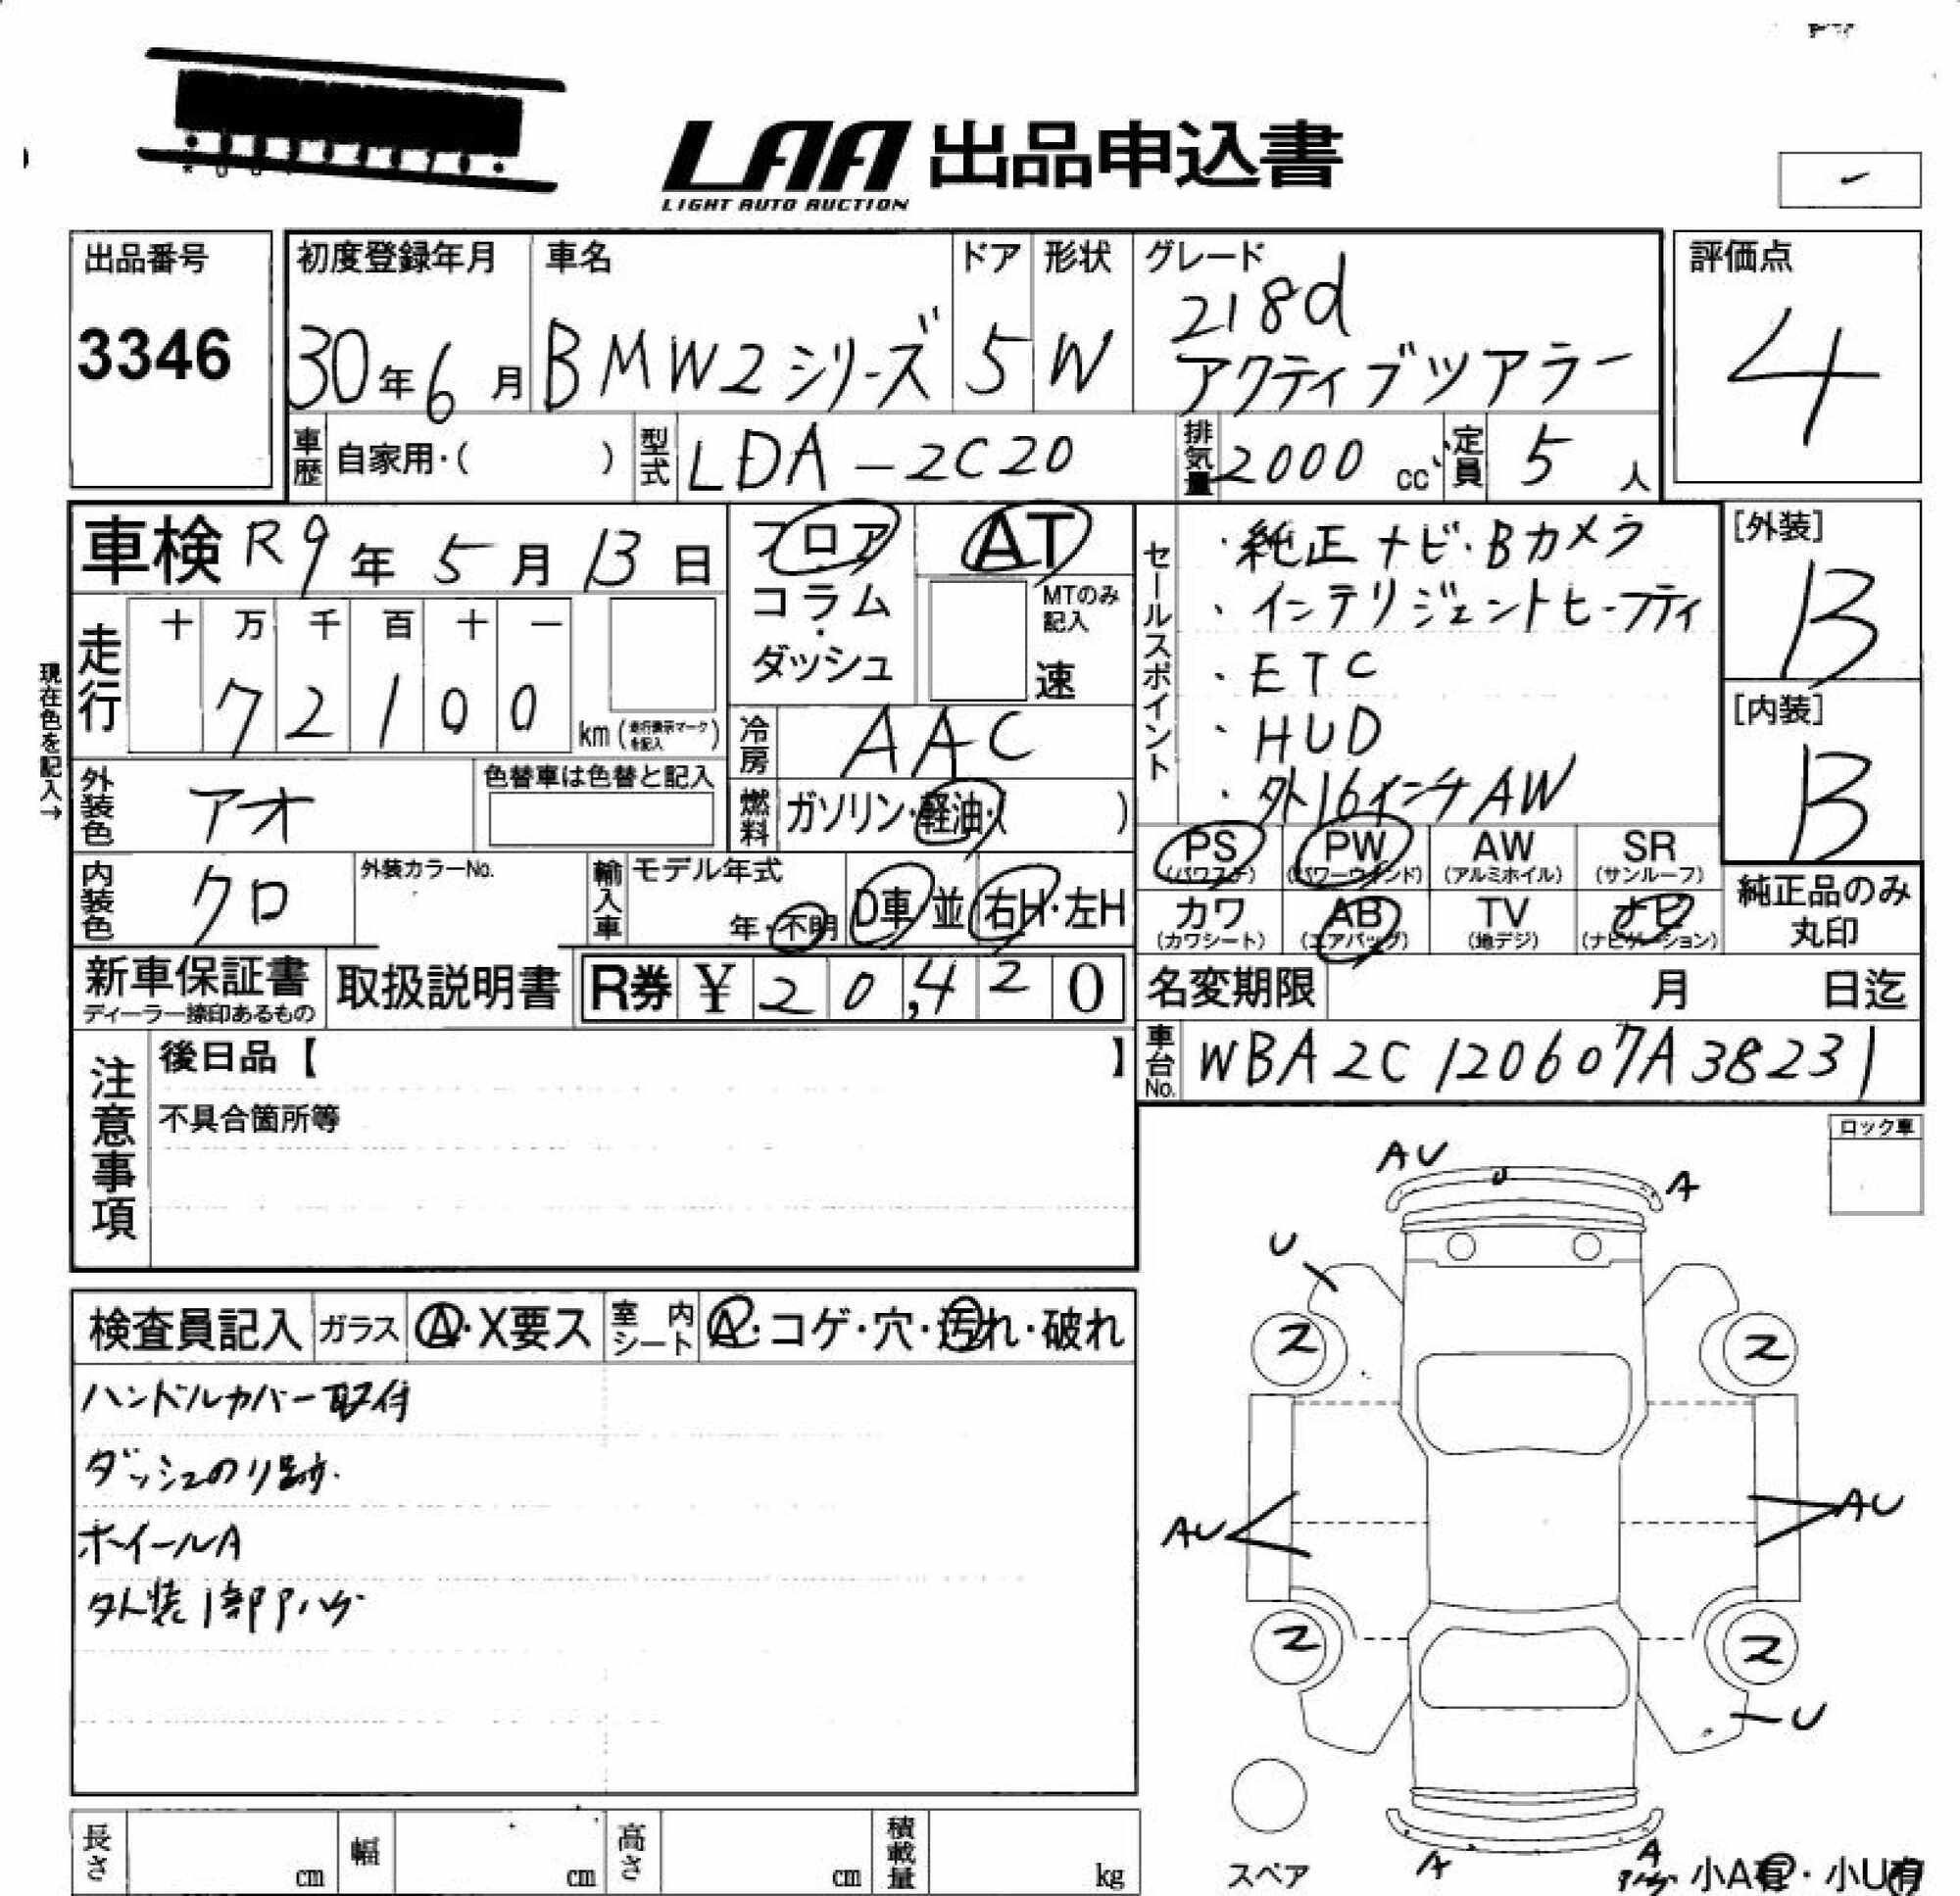 LAA 出品申込書
LIGHT AUTO AUCTION
出品番号
3346
初度登録年月
30年6月
車名
BMW2シリーズ
ドア
5
形状
W
グレード
218d
アクティブツアラー
評価点
4
車歴 自家用・( )
型式 LDA-2C20
排気量 2000 cc
定員 5 人
車検 R9年5月13日
フロア
コラム
・
ダッシュ
AT
MTのみ
記入
速
現在色を記入→
走行
十 万 千 百 十 一
7 2 1 0 0
km (走行表示マークを記入)
冷房 AAC
外装色 アオ
色替車は色替と記入
燃料 ガソリン・軽油・( )
内装色 クロ
外装カラーNo.
輸入車
モデル年式
年・不明
D車・並
右H・左H
セールスポイント
・純正ナビ・Bカメラ
・インテリジェントセーフティ
・ETC
・HUD
・外16インチAW
[外装]
B
[内装]
B
PS
(パワステ)
PW
(パワーウインド)
AW
(アルミホイル)
SR
(サンルーフ)
カワ
(カワシート)
AB
(エアバッグ)
TV
(地デジ)
ナビ
(ナビゲーション)
純正品のみ
丸印
新車保証書
ディーラー捺印あるもの
取扱説明書
R券 ¥ 20,420
名変期限 月 日迄
車台No. WBA2C120607A38231
注意事項
後日品【 】
不具合箇所等
ロック車
検査員記入
ガラス A・X要ス
室内シート A・コゲ・穴・汚れ・破れ
ハンドルカバー取付
ダッシュのり跡.
ホイールA
外装1部アハゲ
AU
A
U
2
2
AU
AU
2
2
U
A
A
スペア
小A有・小U有
長さ cm
幅 cm
高さ cm
積載量 kg